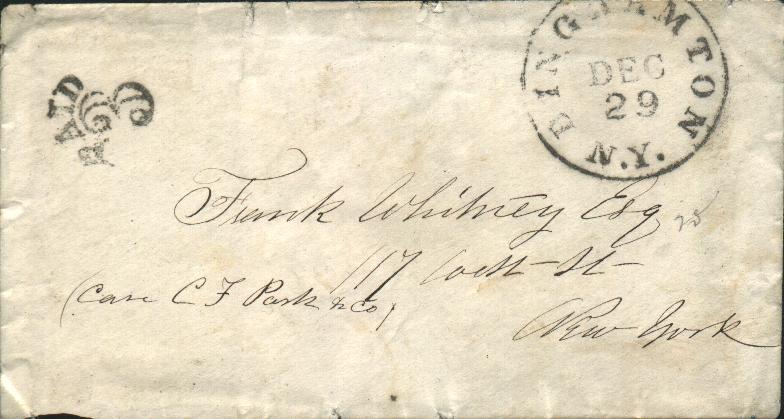 BINGHAMTON
DEC
29
N.Y.
PAID
3
Frank Whitney Esq
117 West St
(Care C F Park & Co)
New York